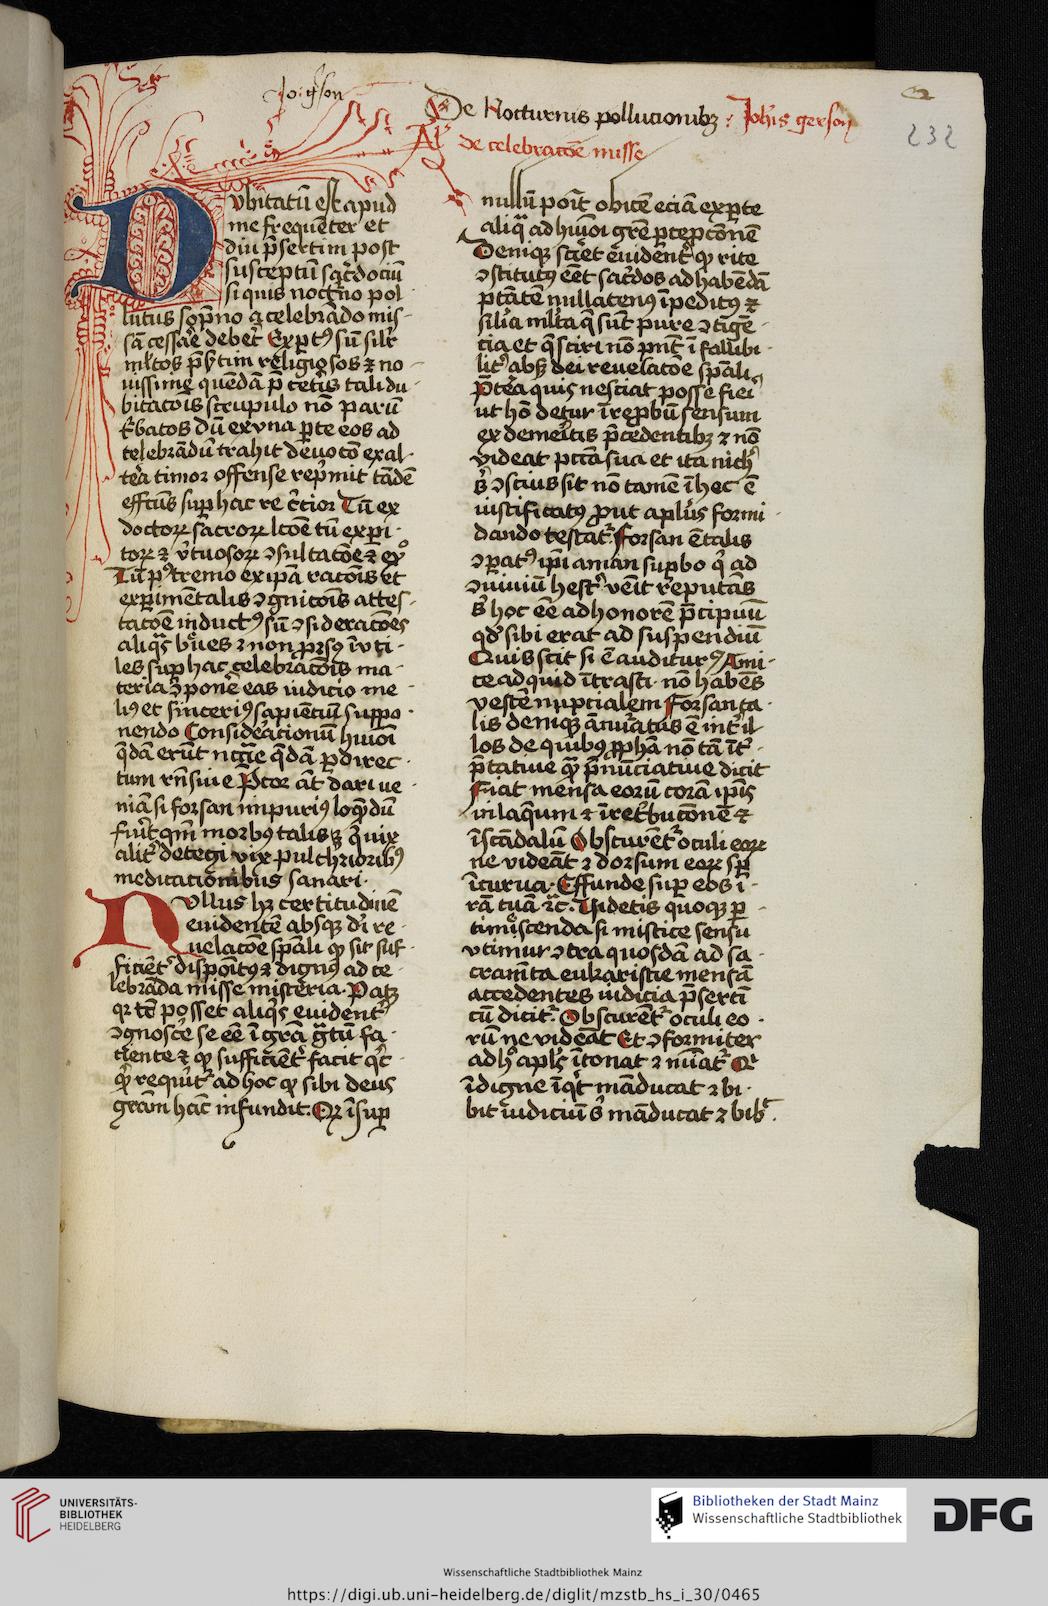 Jo: g'son
De Nocturnis pollucionibꝫ : Joh̃is gerson
Al' de celebracõe misse
232
Dvbitatũ est apud
me frequẽter et
diu p̃sertim post
susceptũ sac̃docíũ
si quis noct̃no pol-
lutus sõpno a celebrãdo mis-
sã cessãe debet̃ Exp̱tꝰ sũ sil'r
ml'tos p̃s̃tim religiosos ⁊ no-
uissime quẽdã p̱ cetĩs tali du-
bitacõis scrupulo nõ parũ
t̃batos dũ ex vna p̱te eos ad
celebrãdũ trahit deuocõ ex al-
tẽa timor offense rep̃mit tãdẽ
effc̃us sup̱ hac re c̃cior Tũ ex
doctoꝝ sacroꝝ lc̃oẽ tũ exp̱i-
toꝝ ⁊ v̓tuosoꝝ ↄsultacõe ⁊ exº
Tũ pꝰtremo ex ip̃a racõis et
exp̱imẽtalis ↄgnicõis attes-
tacõe inductꝰ sũ ↄsideracões
aliqᷓs bᷓues ⁊ non p̱rsꝰ ĩvti-
les sup̱ hac celebracõis ma-
teria ↄponẽ eas iudicio me-
liꝰ et sinceriꝰ sapiẽciũ suppo-
nendo Consideracionũ huiõi
qᷓdã erũt nc̃gᷓe qᷓdã p̱ direc-
tum rñsiue P̃cor aũt dari ue-
niã si forsan impuriꝰ loqᷓdũ
fuit̃ qm̃ morbꝰ talis ꝫ qᷓ uix
alit̃ detegi vix pulchrioribꝰ
meditacionibus sanari.
Nullus hꝫ certitudinẽ
euidentẽ absqꝫ d̃i re-
uelacõe sp̃ali qꝫ sit suf-
ficiẽt̃ disposĩtꝰ ⁊ dignꝰ ad ce-
lebrãda misse misteria. Patꝫ
qꝛ tc̃ posset aliqͥs euident̃
ↄgnoscẽ se eẽ ĩ grã gᷓtũ fa-
ciente ⁊ qꝫ sufficiẽt̃ facit qͥc
qͥd requĩt̃ ad hoc qꝫ sibi deus
grãm hãc infundit. Qꝛ ĩsup̱
nullũ poĩt obicẽ eciã ex p̱te
aliqᷓ ad huiõi grẽ p̱cepcõnẽ
Deniqꝫ sciẽt euident̃ qꝫ rite
ↄstitutꝰ eẽt sac̃dos ad habẽdã
p̃tãtẽ nullatenꝰ ĩpeditꝰ ⁊
sil'ia ml'ta qᷓ sũt pure ↄtigẽ-
cia et qᷓ sciri nõ pñt ĩfallibi-
lit̃ absqꝫ dei reuelacõe sp̃ali
P̃tẽa quis nesciat posse fiẽi
ut hõ detur ĩ rep̱bũ sensum
ex demeĩtis p̃cedentibꝫ ⁊ nõ
videat pc̃cã sua et ita nichͥ
sͥ ↄscius sit nõ tamẽ ĩ hec ẽ
iustificatꝰ p̱ut apl'us formi-
dando testat̃ Forsan ẽ talis
ↄp̱atꝰ ip̃i aman sup̱bo qͥ ad
ↄuiuiũ hest̃ veĩt reputãs
sͥ hoc eẽ ad honorẽ p̃cipuũ
qd' sibi erat ad suspendiũ
Quis scit si ẽ auditurꝰ Ami-
ce ad quid ĩtrasti. nõ habẽs
vestẽ nupcialem Forsan ta-
lis deniqꝫ ãnũatus ẽ int̃ il-
los de quibꝰ p̱pha nõ tã ĩt̃-
p̃tatiue qᷓ p̃nũciatiue dicit
Fiat mensa eorũ corã ip̃is
in laq̃um ⁊ ĩ ret̃bucõnẽ ⁊
ĩ scãdalũ Obscurẽt̃ oculi eoꝝ
ne videãt ⁊ dorsum eoꝝ sp̱
ĩcurua. Effunde sup̱ eos ĩ-
rã tuã ⁊c̃. Uidetis quoqꝫ p̱-
timẽscenda si mistice sensu
vtimur ↄtra quosdã ad sa-
cramẽta eukaristie mensã
accedentes iudicia p̃sertĩ
cũ dicit̃. Obscurẽt̃ oculi eo-
rũ ne videãt Et ↄformiter
ad hͦ apl's ĩtonat ⁊ mĩat̃ Qͥ
ĩdigne ĩqͥt mãducat ⁊ bi-
bit iudiciũ sͥ mãducat ⁊ bib̃.
UNIVERSITÄTS-
BIBLIOTHEK
HEIDELBERG
Bibliotheken der Stadt Mainz
Wissenschaftliche Stadtbibliothek
DFG
Wissenschaftliche Stadtbibliothek Mainz
https://digi.ub.uni-heidelberg.de/diglit/mzstb_hs_i_30/0465